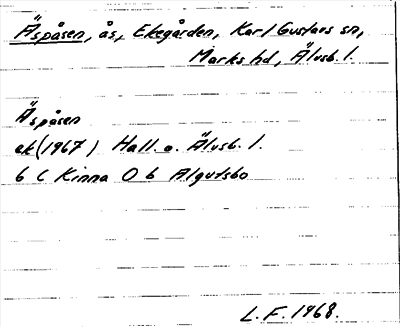 Äspåsen, ås, Ekegården, Karl Gustavs sn,
Marks hd, Älvsb. l.
Äspåsen
ek (1967) Hall. o. Älvsb. l.
6 C Kinna 0 b Algutsbo
L. F. 1968.